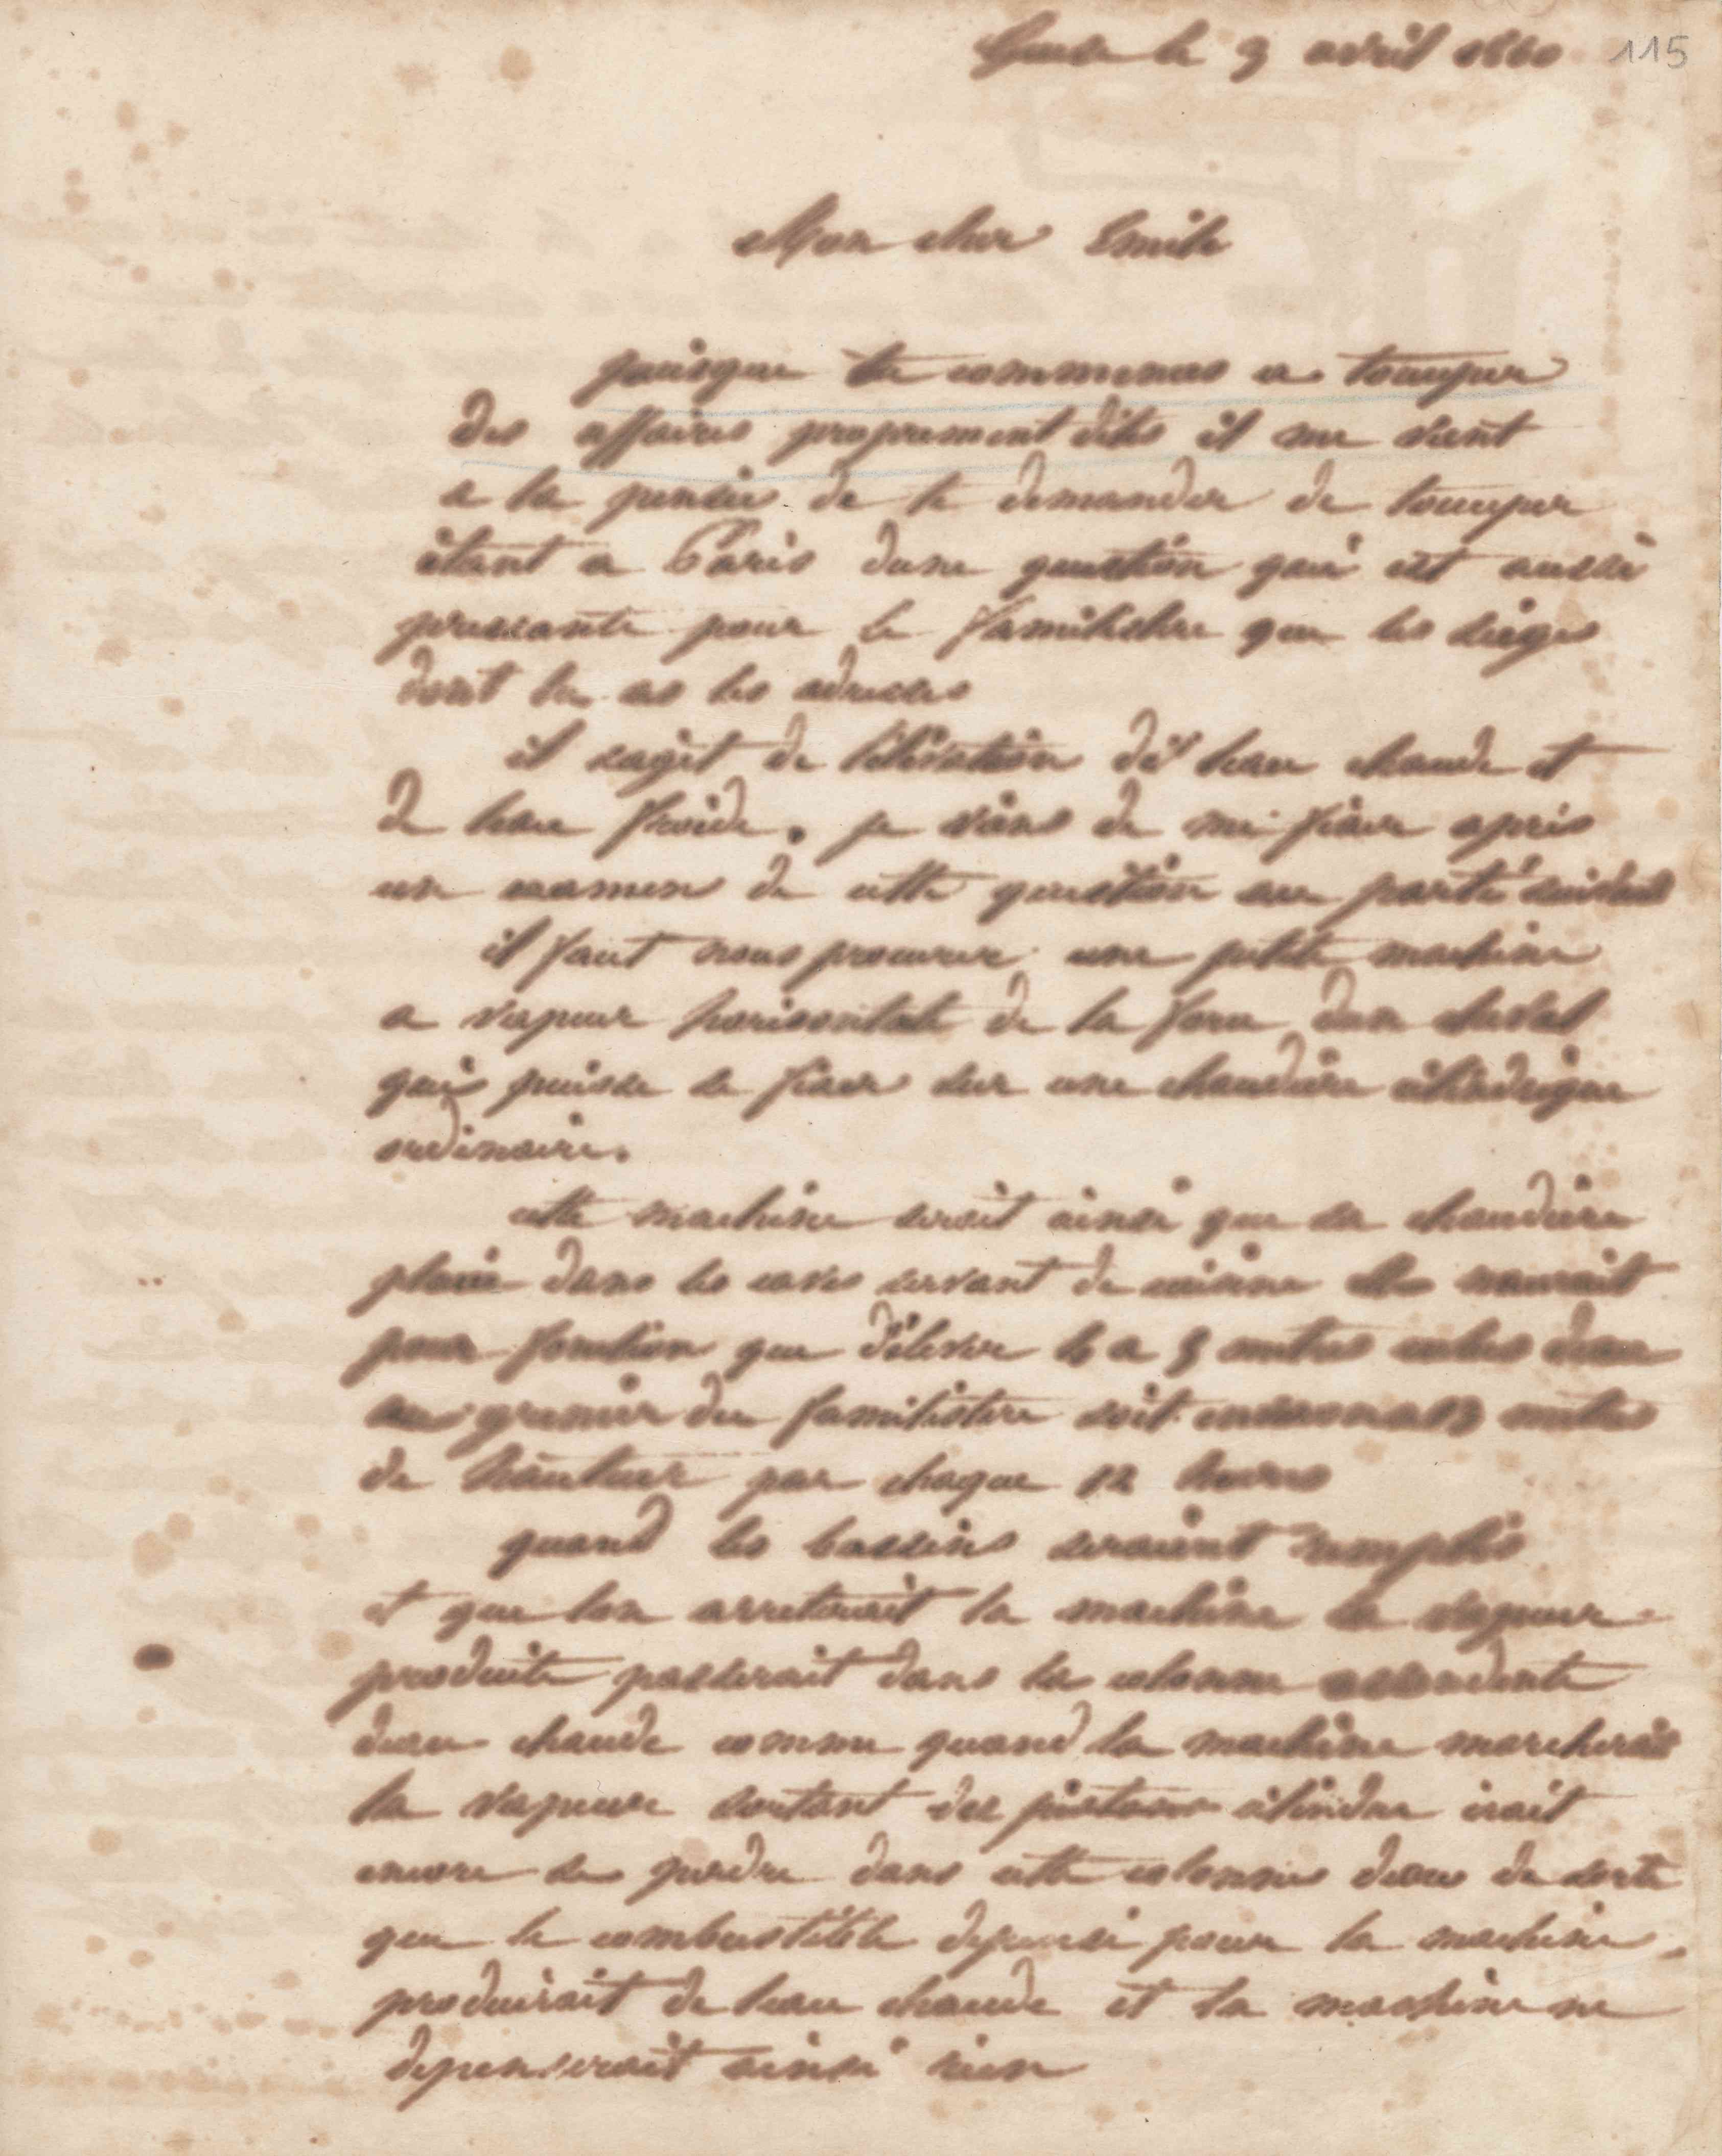 Guise le 9 avril 1860 115
Mon cher Emile
puisque tu commences a toccuper
des affaires proprement dites il me vient
a la pensée de te demander de toccuper
étant a Paris dune question qui est aussi
pressante pour le familistere que les sièges
dont tu as les adresses
il sagit de lélévation de leau chaude et
de leau froide. je viens de me fixer apres
un examen de cette question au parti suivant
il faut nous procurer une petite machine
a vapeur horisontale de la force dun cheval
qui puisse se fixer sur une chaudière cilindrique
ordinaire.
cette machine serait ainsi que sa chaudière
placée dans les caves servant de cuisine elle naurait
pour fonction que déléver 4 a 5 mètres cubes deau
au grenier du familistere soit environ a 13 mètres
de hauteur par chaque 12 heures
quand les bassins seraient remplis
et que lon arreterait la machine la vapeur
produite passerait dans la colonne ascendente
deau chaude comme quand la machine marcherait
la vapeur sortant du cilindre irait
encore se perdre dans cette colonne deau de sorte
que le combustible depensé pour la machine
produirait de leau chaude et la machine ne
depenserait ainsi rien